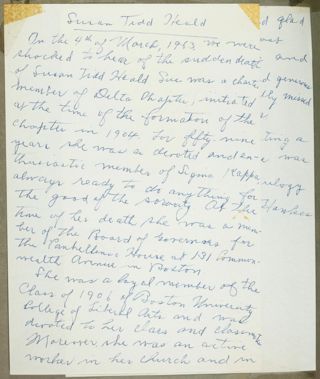 Susan Tidd Heald
On the 4th of March, 1963 we were
shocked to hear of the sudden death
of Susan Tidd Heald Sue was a charter
member of Delta Chapter, initiated
at the time of the formation of the
chapter in 1904. For fifty-nine
years she was a devoted and en-
thusiastic member of Sigma Kappa,
always ready to do anything for
the good of the sorority At the
time of her death she was a mem-
ber of the Board of Governors for
the Panhellenic House at 131 Common-
wealth Avenue in Boston
She was a loyal member of the
Class of 1906 of Boston University
College of Liberal Arts and was
devoted to her class and classmates
Moreover she was an active
worker in her church and in
glad
and
generous
missed
ting a
was